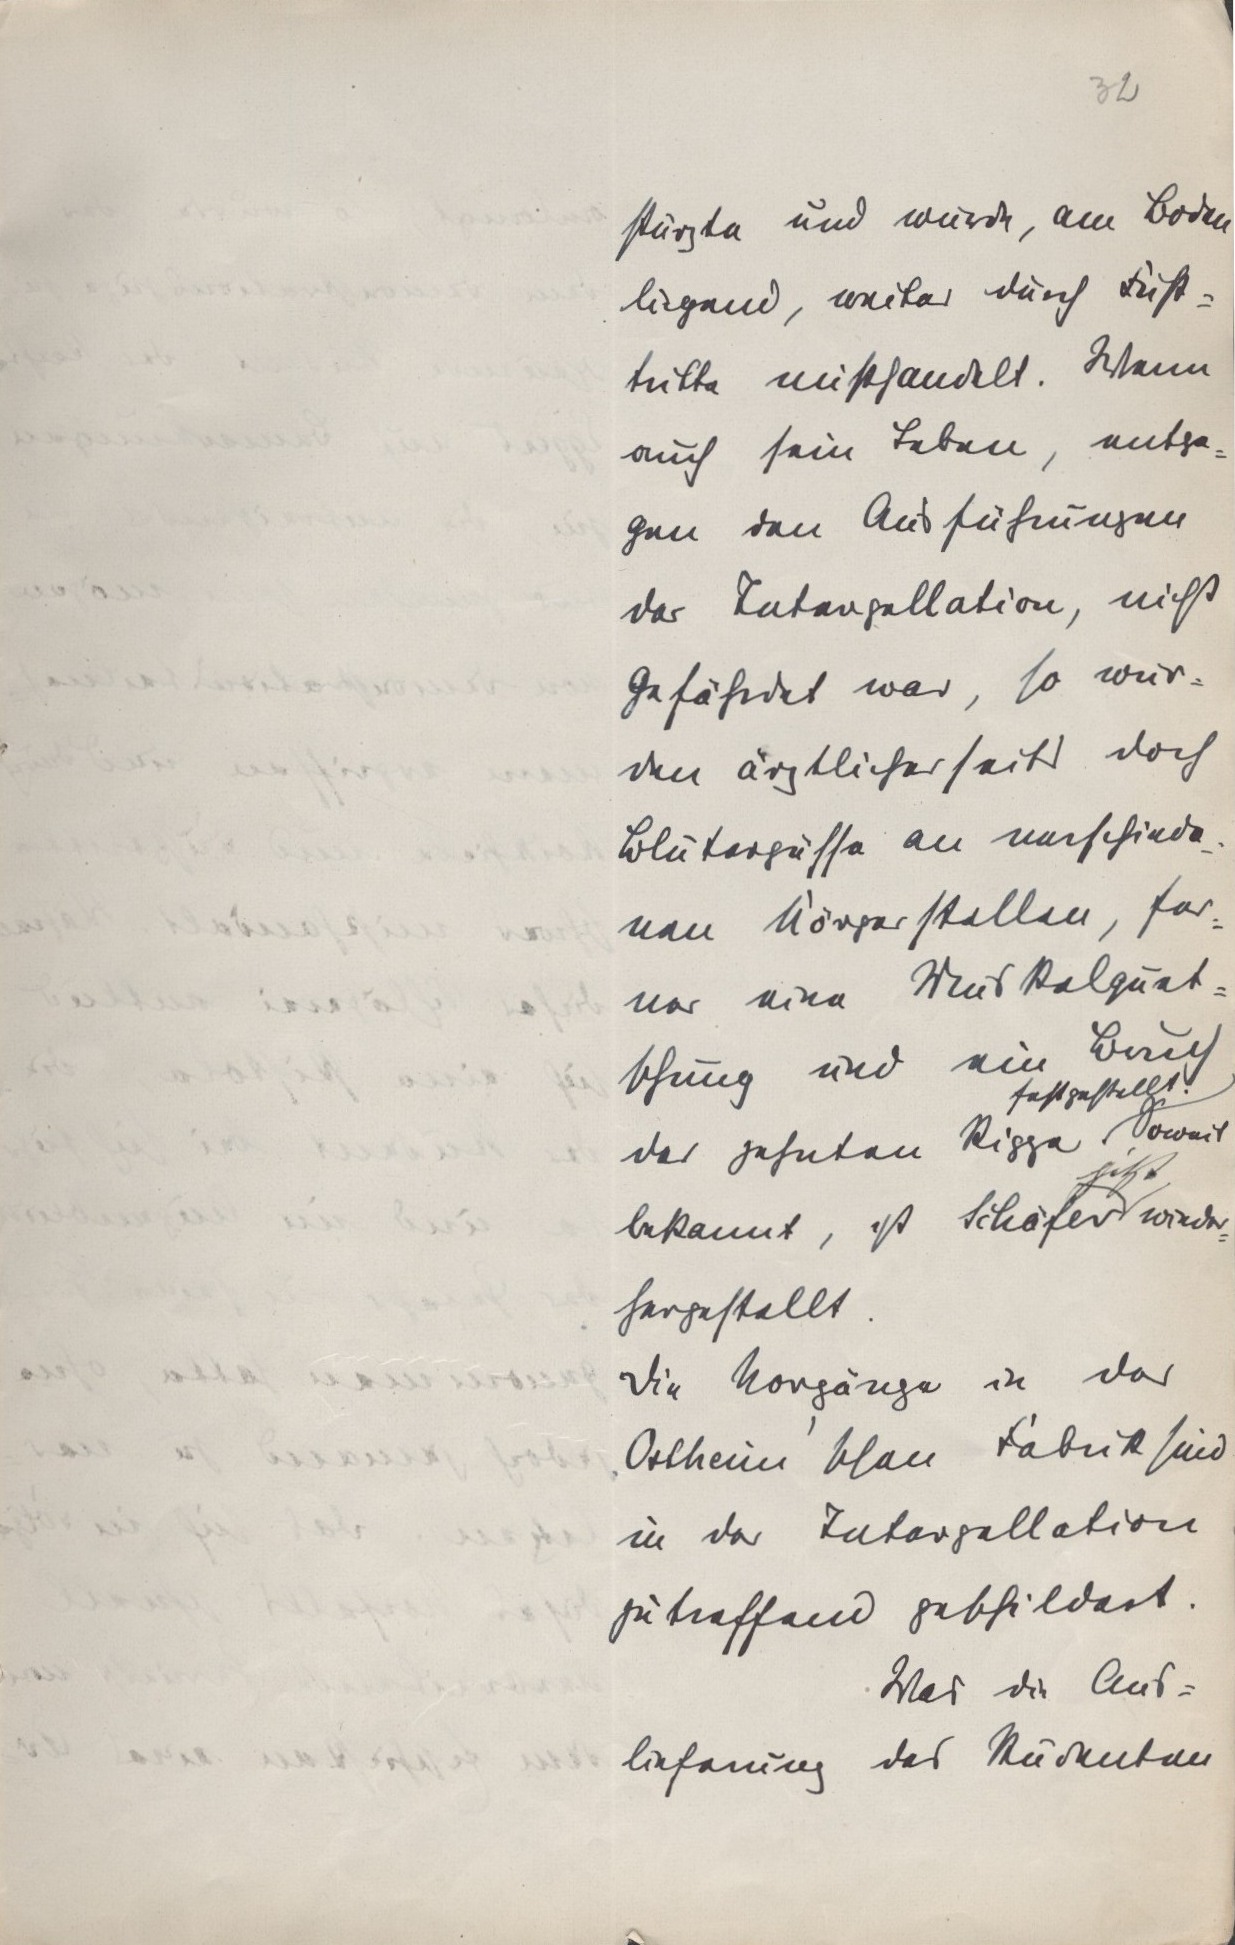 32
stürzte und wurde, am Boden
liegend, weiter durch Fuß=
tritte mißhandelt. Wenn
auch sein Leben, entge=
gen den Ausführungen
der Interpellation, nicht
gefährdet war, so wur=
den ärztlicherseits doch
Blutergüsse an verschiede=
nen Körperstellen, fer=
ner eine Muskelquet=
schung und ein Bruch
festgestellt.
der zehnten Rippe. Soweit
jetzt
bekannt, ist Schäfer wieder=
hergestellt.
Die Vorgänge in der
Ostheim'schen Fabrik sind
in der Interpellation
zutreffend geschildert.
Was die Aus=
lieferung des Studenten